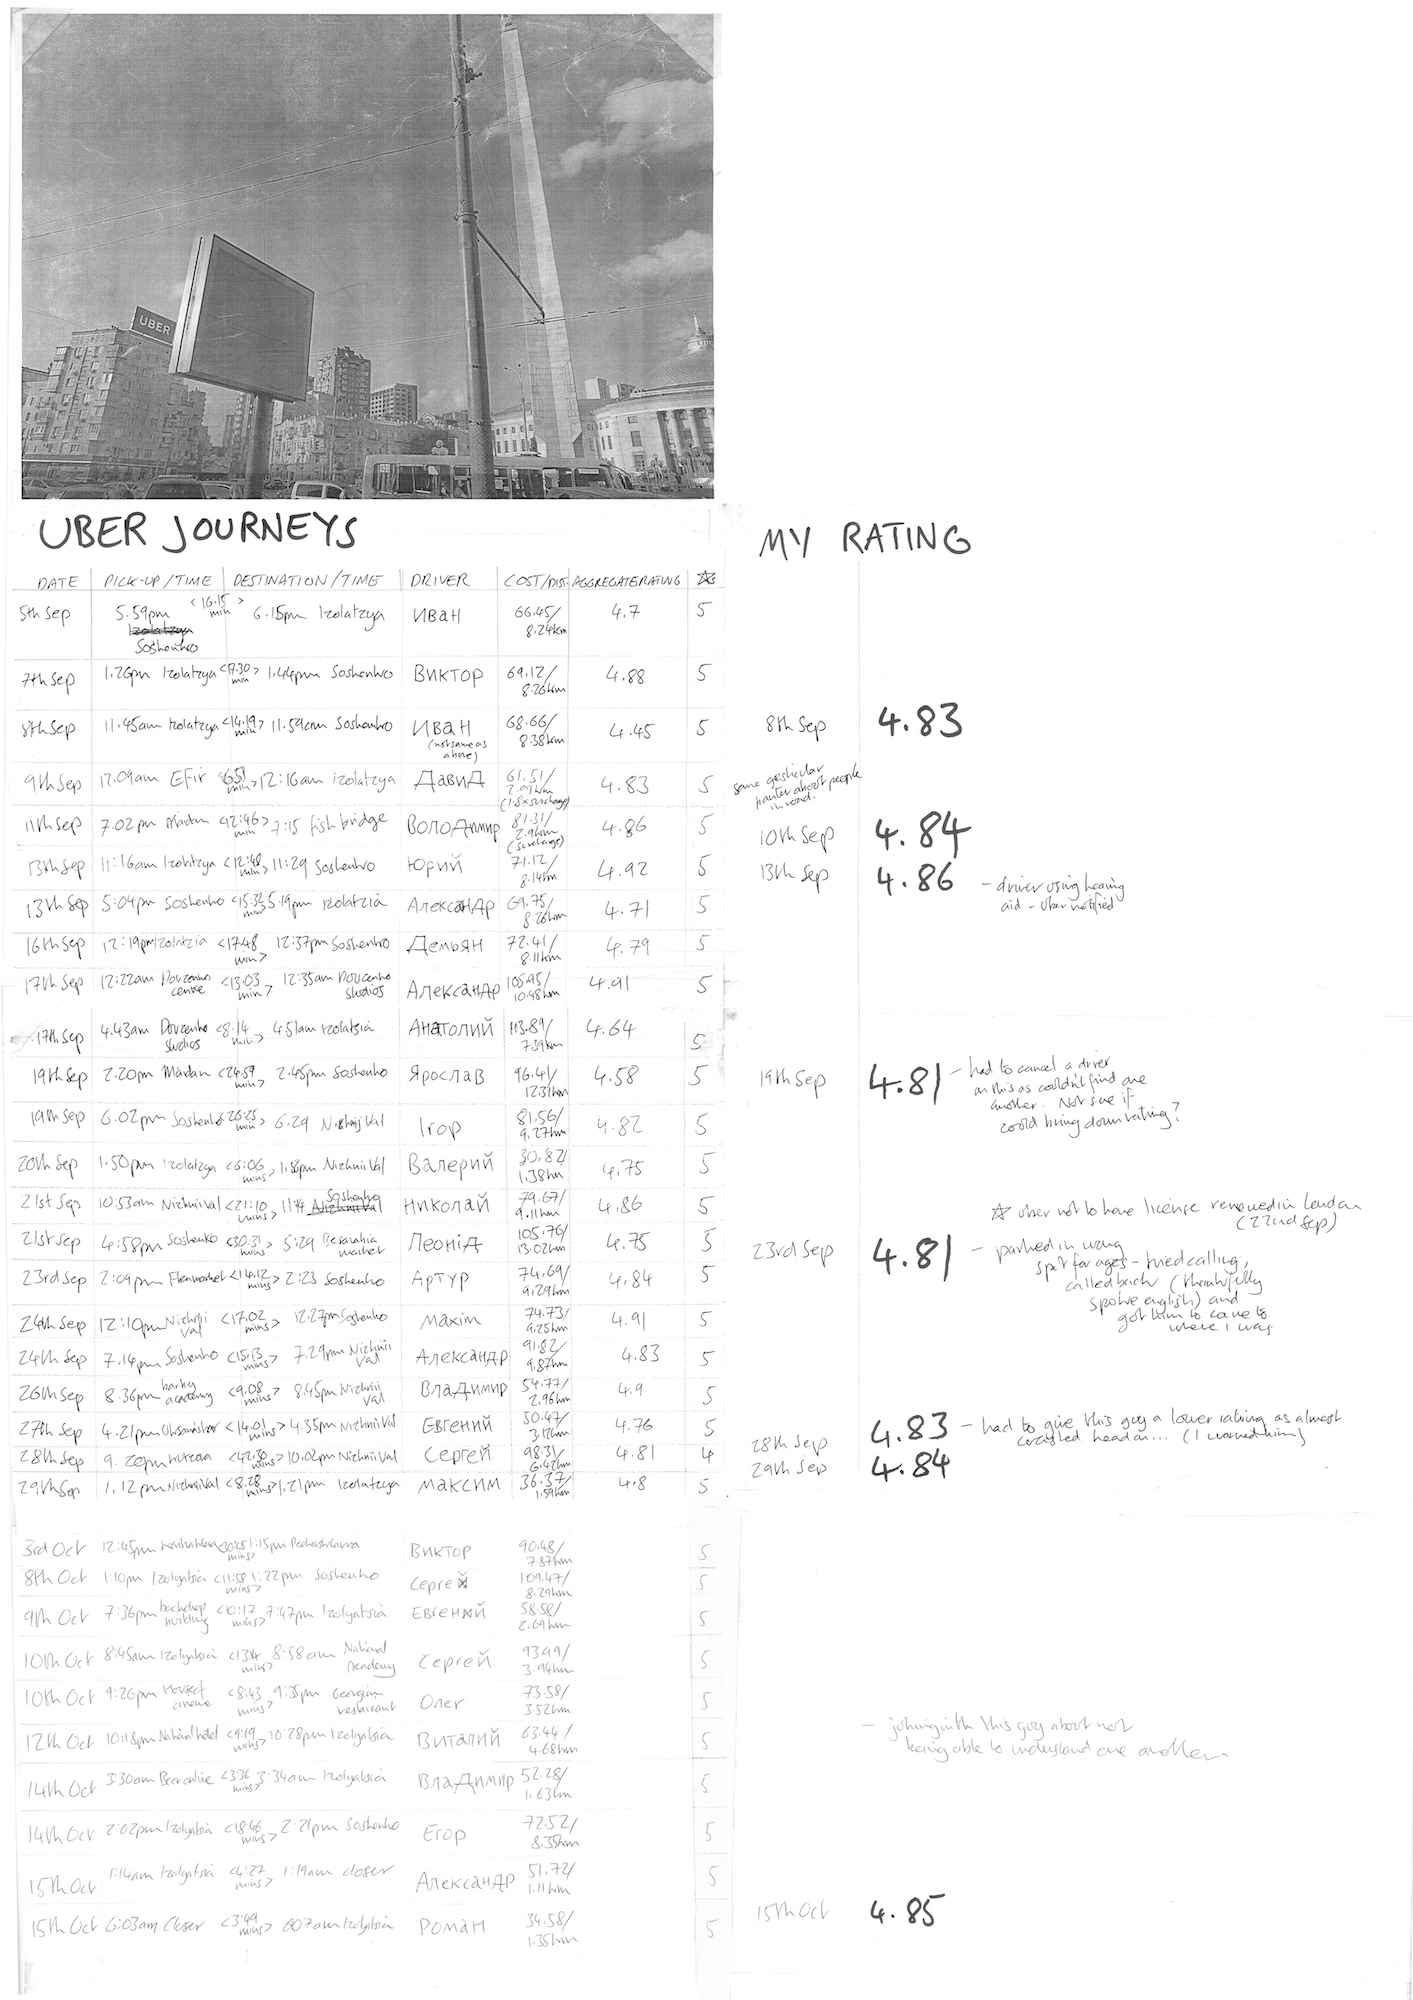 UBER
UBER JOURNEYS
MY RATING
DATE PICK-UP/TIME DESTINATION/TIME DRIVER COST/DIST AGGREGATE RATING ☆
5th Sep 5.59pm Soshenko <16.15 min> 6.15pm Izolatzya Иван 66.45/ 8.24km 4.7 5
7th Sep 1.26pm Izolatzya <17.30 min> 1.44pm Soshenko Виктор 69.12/ 8.26km 4.88 5
8th Sep 11.45am Izolatzya <14.19 min> 11.59am Soshenko Иван (not same as above) 68.66/ 8.38km 4.45 5
8th Sep 4.83
9th Sep 12.09am Efir <6.51 min> 12:16am Izolatzya Давид 61.51/ (1.8x surcharge) 4.83 5
some gesticular banter about people in road.
11th Sep 7.02pm <12:46 min> 7:15 fish bridge Володимир 81.31/ 2.9km (surcharge) 4.86 5
10th Sep 4.84
13th Sep 11:16am Izolatzya <12:48 min> 11:29 Soshenko Юрий 71.12/ 8.14km 4.92 5
13th Sep 4.86 - driver using hearing aid - Uber notified
13th Sep 5:04pm Soshenko <15:32 min> 5.19pm Izolatzia Александр 69.75/ 8.26km 4.71 5
16th Sep 12:19pm Izolatzia <17.48 min> 12:37pm Soshenko Демьян 72.41/ 8.11km 4.79 5
17th Sep 12:22am Dovzenko centre <13.03 min> 12:35am Dovzenko studios Александр 105.95/ 10.48km 4.91 5
17th Sep 4.43am Dovzenko studios <8.14 min> 4.51am Izolatsia Анатолий 113.89/ 7.39km 4.64 5
19th Sep 2.20pm Maidan <24.59 min> 2.45pm Soshenko Ярослав 96.41/ 12.31km 4.58 5
19th Sep 4.81 - had to cancel a driver
on this as couldn't find one
another. Not sure if
could bring down rating?
19th Sep 6.02pm Soshenko <26:25 min> 6.29 Nizhnij Val Ігор 81.56/ 9.27km 4.82 5
20th Sep 1.50pm Izolatzya <6:06 mins> 1.56pm Nizhnii Val Валерий 30.82/ 1.38km 4.75 5
21st Sep 10:53am Nizhnii Val <21:10 mins> 11:14 Soshenko Николай 79.67/ 9.11km 4.86 5
☆ Uber not to have license renewed in London
(22nd Sep)
21st Sep 4:58pm Soshenko <30:31 mins> 5:29 Besarabia market Леонід 105.76/ 13.02km 4.75 5
23rd Sep 2:09pm Flea market <14.12 mins> 2:23 Soshenko Артур 74.69/ 9.29km 4.84 5
23rd Sep 4.81 - parked in wrong
spot for ages - tried calling,
called back (thankfully
spoke english) and
got him to come to
where I was.
24th Sep 12:10pm Nizhnii Val <17.02 mins> 12.27pm Soshenko Maxim 74.73/ 9.25km 4.91 5
24th Sep 7.14pm Soshenko <15.13 mins> 7.29pm Nizhnii Val Александр 91.82/ 9.87km 4.83 5
26th Sep 8.36pm academy <9.08 mins> 8.45pm Nizhnii Val Владимир 54.77/ 2.96km 4.9 5
27th Sep 4.21pm <14.01 mins> 4.35pm Nizhnii Val Евгений 50.47/ 3.12km 4.76 5
28th Sep 9.20pm <42.30 mins> 10.02pm Nizhnii Val Сергей 98.31/ 6.42km 4.81 4
28th Sep 4.83 - had to give this guy a lower rating as almost
crashed head on... (I warned him)
29th Sep 1.12pm Nizhnii Val <8.28 mins> 1.21pm Izolatzya Максим 36.37/ 1.59km 4.8 5
29th Sep 4.84
3rd Oct 12:45pm 1:15pm Виктор 90.48/ 7.87km 5
8th Oct 1:10pm Izolyatsia <11:58 mins> 1:22pm Soshenko Сергей 109.47/ 8.29km 5
9th Oct 7:36pm building <10:17 mins> 7:47pm Izolyatsia Евгений 58.58/ 2.69km 5
10th Oct 8:45am Izolyatsia 8:58am National Academy Сергей 93.99/ 3.94km 5
10th Oct 9:26pm House of cinema <8:43 mins> 9:35pm Georgian restaurant Олег 73.58/ 3.52km 5
12th Oct 10:18pm National hotel <9:19 mins> 10:28pm Izolyatsia Виталий 63.44/ 4.68km 5
- joking with this guy about not
being able to understand one another.
14th Oct 3:30am <3:36 mins> 3:34am Izolyatsia Владимир 52.28/ 1.63km 5
14th Oct 2:02pm Izolyatsia <18:46 mins> 2:21pm Soshenko Егор 72.52/ 8.35km 5
15th Oct 1:14am Izolyatsia <4:27 mins> 1:19am Closer Александр 51.72/ 1.11km 5
15th Oct 6:03am Closer <3:49 mins> 6:07am Izolyatsia Роман 34.58/ 1.35km 5
15th Oct 4.85